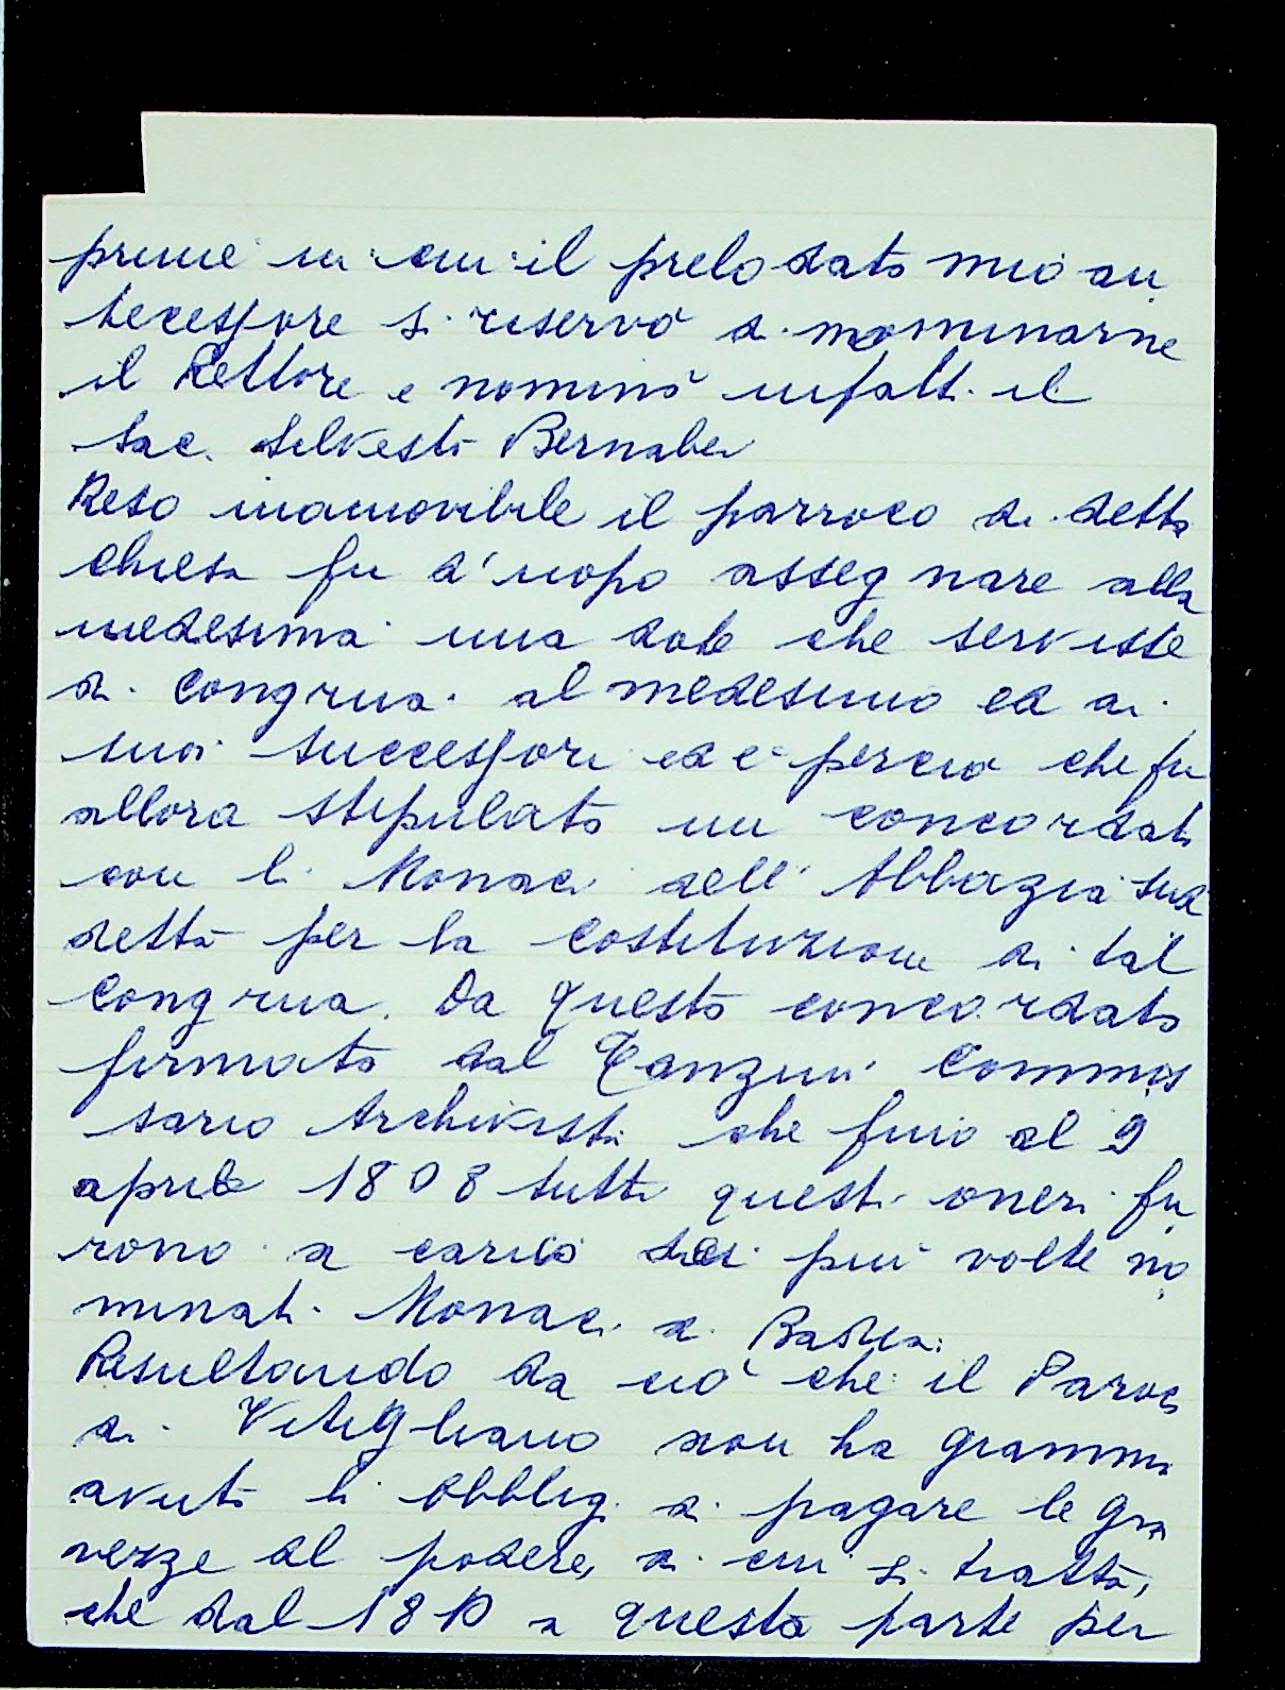 prime in cui il prelodato mio an
tecessore si riservò di nominarne
il Rettore e nominò infatti il
Sac. Silvestri Bernabei
Reso inamovibile il parroco di detta
chiesa fu d'uopo assegnare alla
medesima una dote che servisse
di congrua al medesimo ed ai
suoi successori ed è perciò che fu
allora stipulato un concordato
con li Monaci dell'Abbazia sud
detta per la costituzione di tal
congrua. Da questo concordato
firmato dal Tanzini Commis
sario Archivista che fino al 9
aprile 1808 tutti questi oneri fu
rono a carico dei più volte no
minati Monaci di Badia.
Resultando da ciò che il Paroco
di Vitigliano non ha
avuto li obblighi di pagare le gra
vezze al podere, di cui si tratta,
che dal 1810 a questa parte per